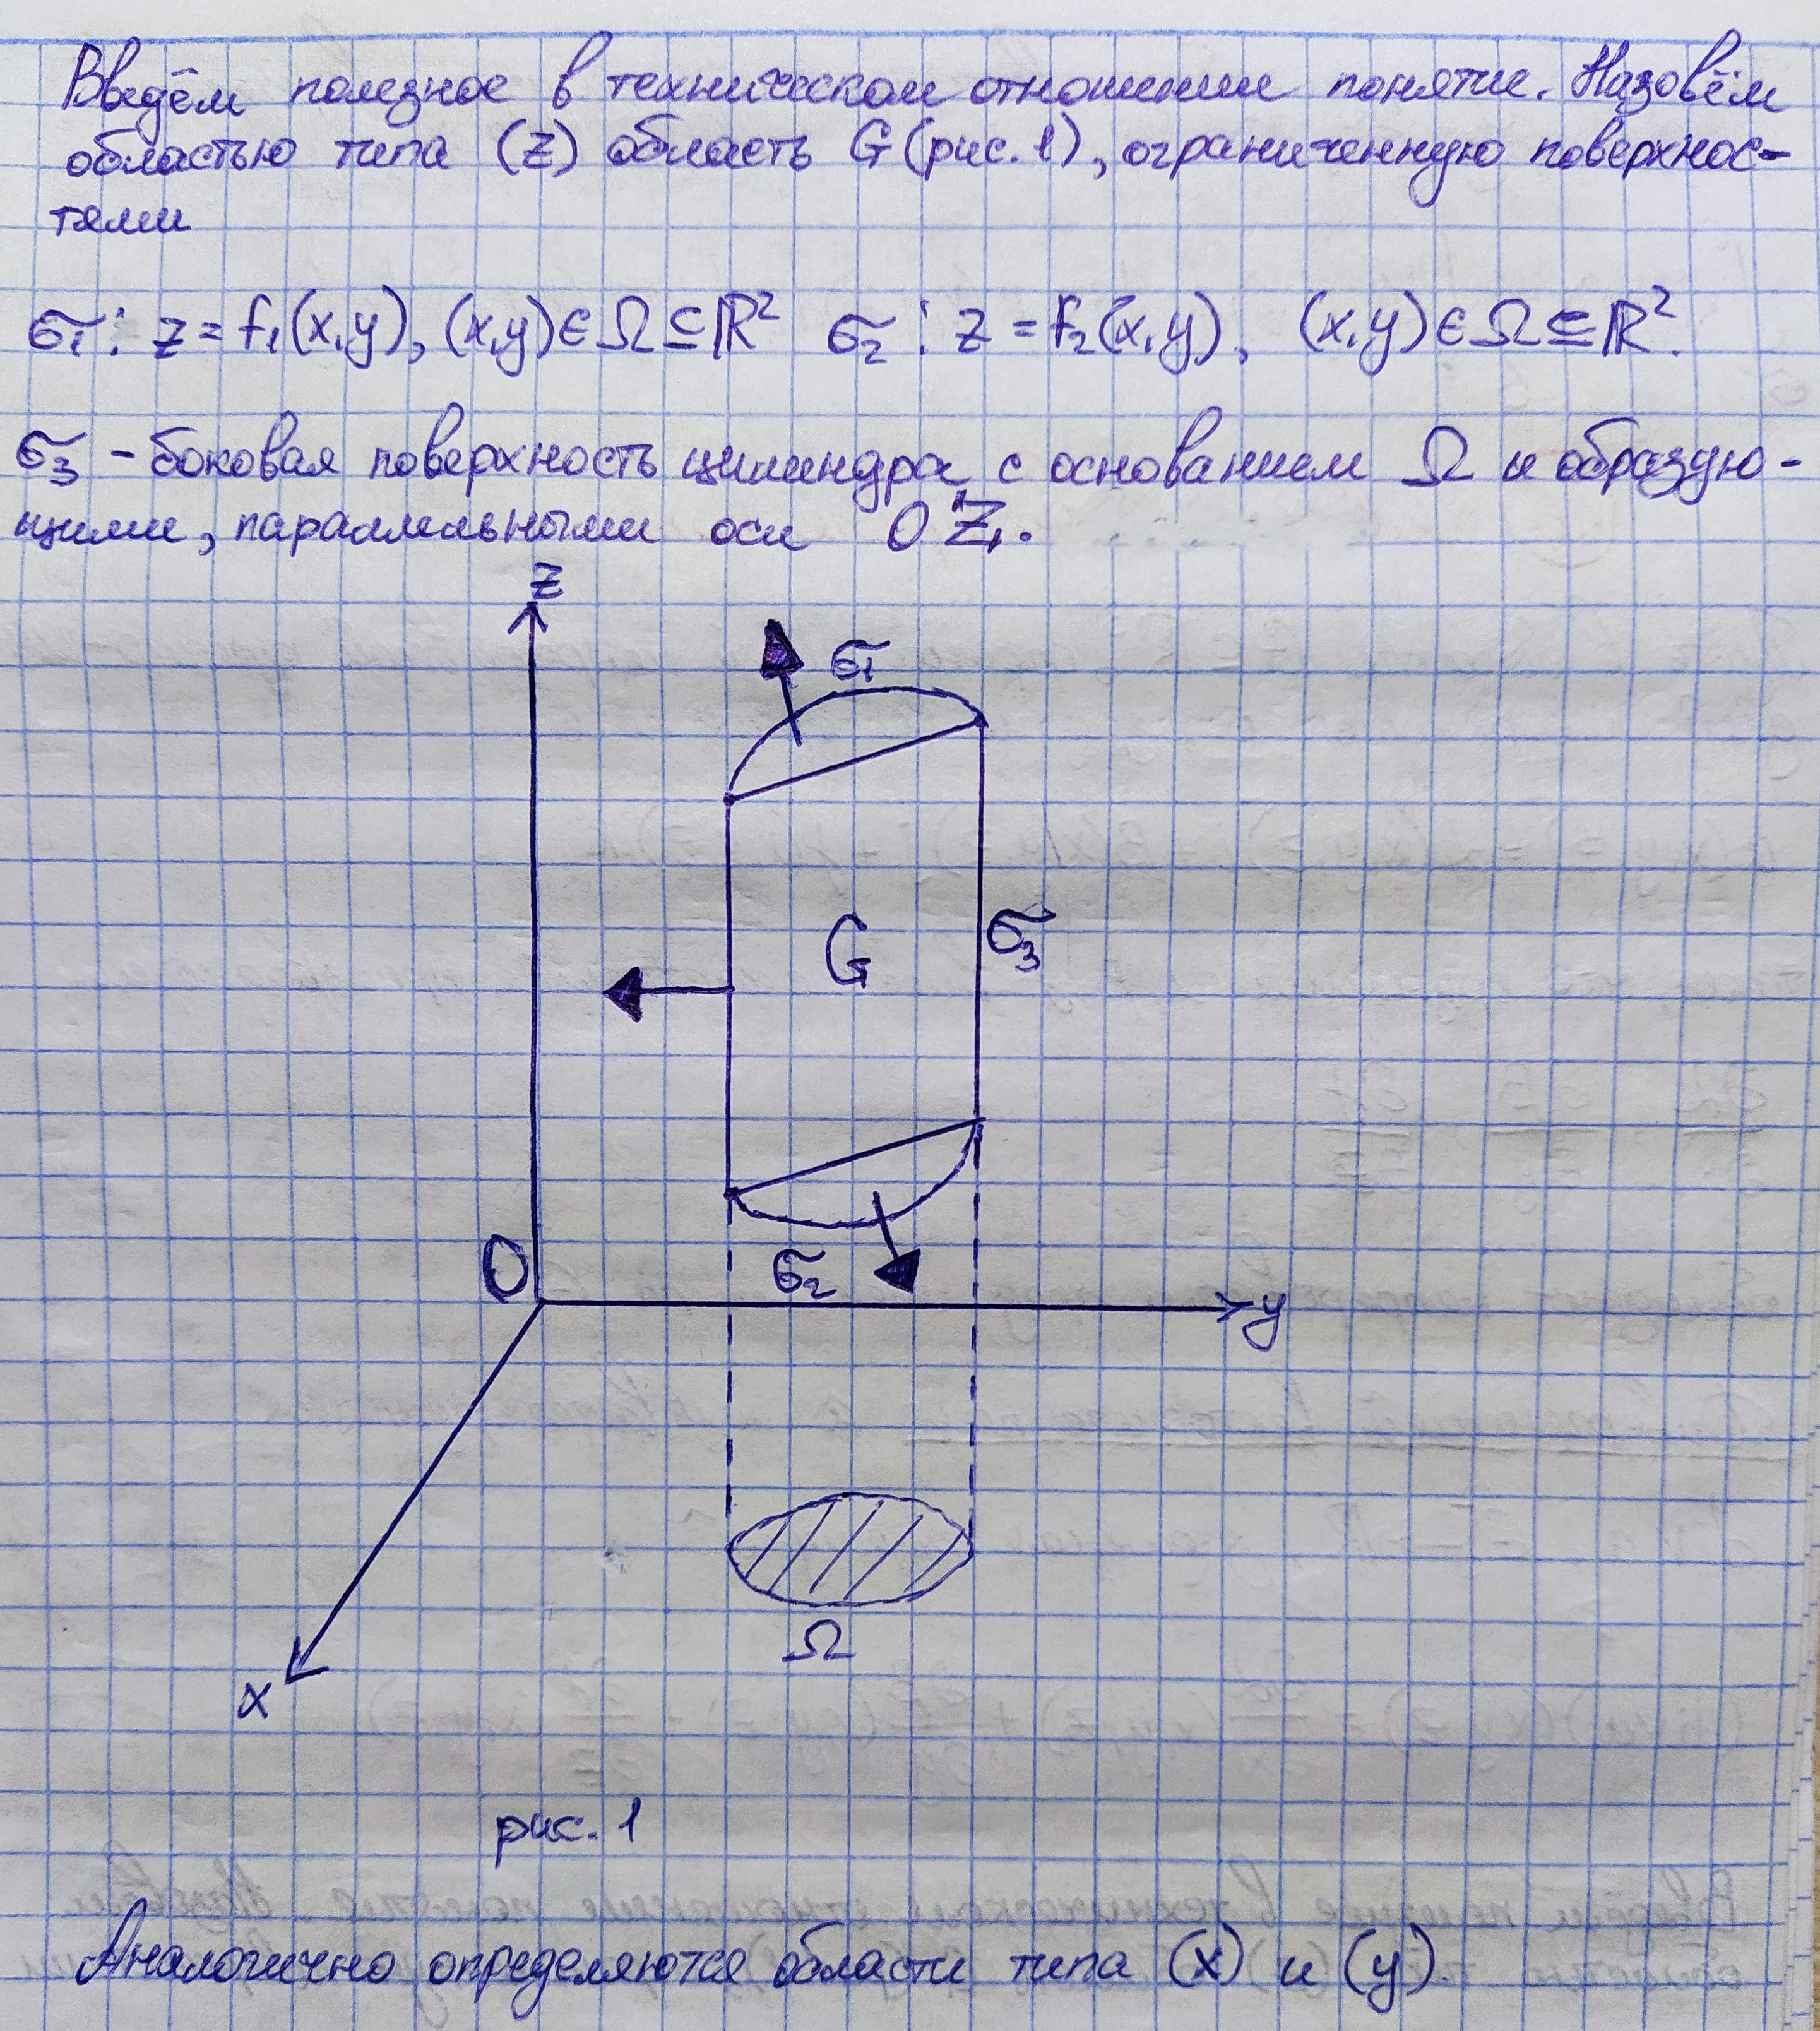 Введём полезное в техническом отношении понятие. Назовём
областью типа (Z) область G (рис. 1), ограниченную поверхнос-
тями
σ₁: z = f₁(x,y), (x,y) ∈ Ω ⊆ ℝ² σ₂: z = f₂(x,y), (x,y) ∈ Ω ⊆ ℝ².
σ₃ - боковая поверхность цилиндра с основанием Ω и образую-
щими, параллельными оси OZ.
z
σ₁
G
σ₃
O
σ₂
y
Ω
x
рис. 1
Аналогично определяются области типа (x) и (y).